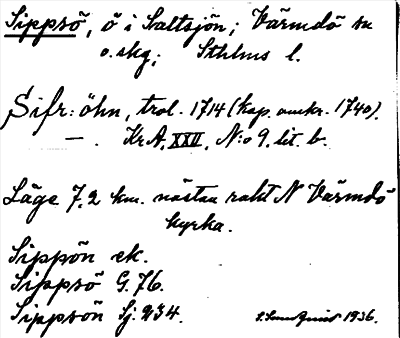 Sippsö, ö i Saltsjön; Värmdö sn
o. skg; Sthlms l.
Sifr: öhn, trol. 1714 (kop. omkr. 1740).
— . Kr. A. XXII, N:o 9. lit. b.
Läge 7,2 km. nästan rakt N Värmdö
kyrka.
Sippön ek.
Sippsö G. 76.
Sippsön Sj: 234.
1936.